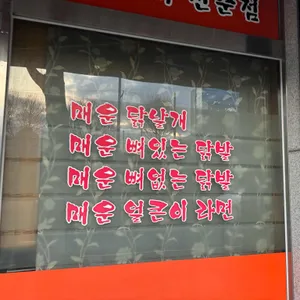 매운 닭날개
매운 뼈있는 닭발
매운 뼈없는 닭발
매운 얼큰이 라면